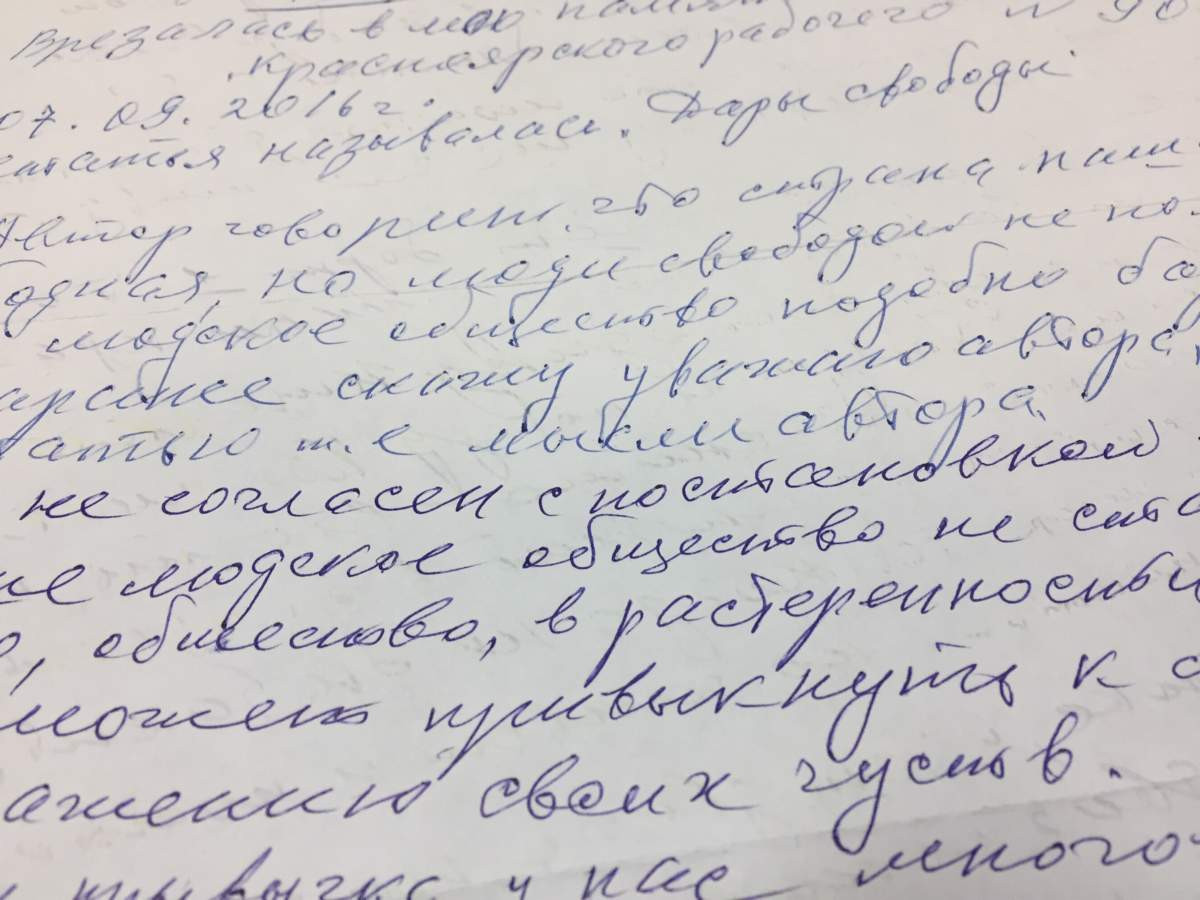 Врезалась в мою памят
Красноярского рабочего N 90
07. 09. 2016 г.
статья называлась. Дары свободы
Автор говорит, что страна наш
одная, но люди свободой не по
людское общество подобно ба
аранее скажу уважаю автора,
атью т.е мысли автора,
не согласен с постановкой
ие людское общество не ста
о, общество, в растеренность
может привыкнуть к с
ажению своих чуств.
привычка у нас много